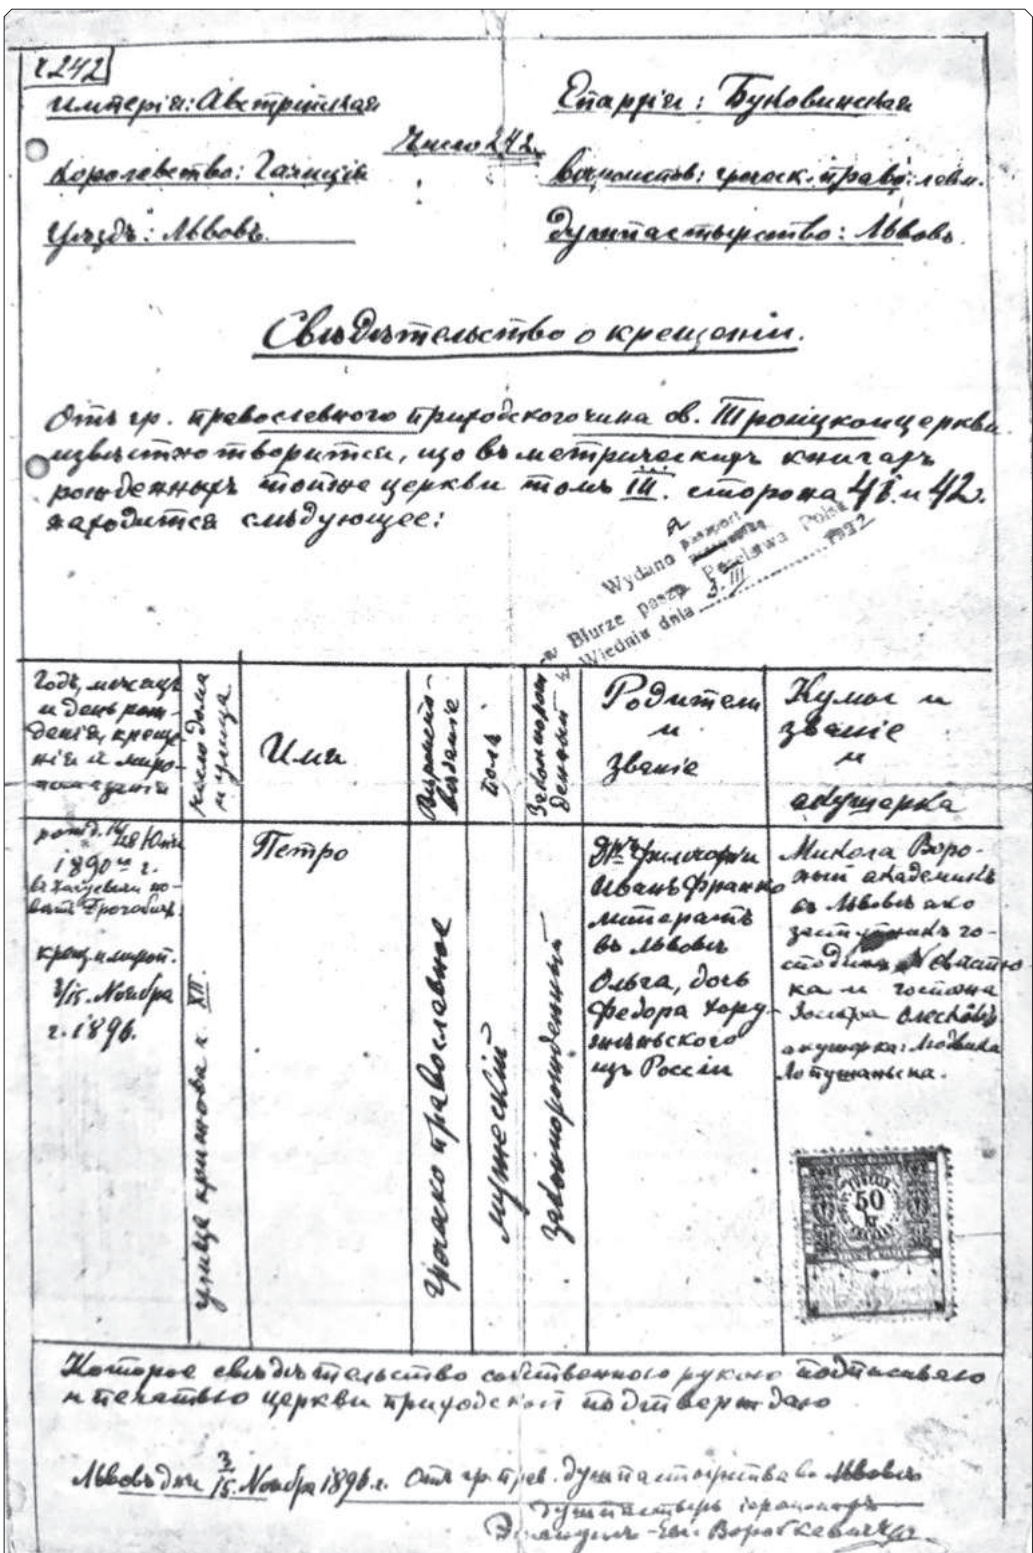 ч. 242
имперія: Австрійская
Епархія: Буковинская
Число 242.
Королевство: Галиція
Уѣздъ: Львовъ.
Душпастырство: Львовъ.
Свѣдѣтельство о крещеніи.
Отъ гр. православного приходского чина св. Троицкои церкви
извѣстно творится, що въ метрическихъ книгахъ
рожденныхъ тойже церкви томъ III. сторона 41. и 42.
находится слѣдующее:
Wydano paszport
w Biurze paszp. Poselstwa Polsk
Wiedniu dnia 3. III 1922
Годъ, мѣсяцъ
и день рож-
денія, креще-
нія и миро-
помазанія
число дома
и улица
Имя
Вѣроиспо-
вѣданіе
полъ
Родители
и
званіе
Кумы и
званіе
и
акушерка
1890 г.
крещ. и мироп.
3/15. Ноября
г. 1896.
улица крижова ч. XII.
Петро
Грекo православное
мужескій
законорожденный
Дръ философіи
Иванъ Франко
литератъ
въ Львовѣ
Ольга, дочь
Федора Хору-
жинского
изъ Россіи
Микола Воро-
ный академикъ
въ Львовѣ ако
заступникъ го-
сподина
ка и госпожа
акушерка: Людвика
Лопушаньска.
50
kr
Которое свѣдѣтельство собственною рукою подписываю
и печатью церкви приходской подтверждаю
Львовъ дня 3/15. Ноября 1896. г. Отъ гр. прав. душпастырства во Львовѣ
Воробкевичъ